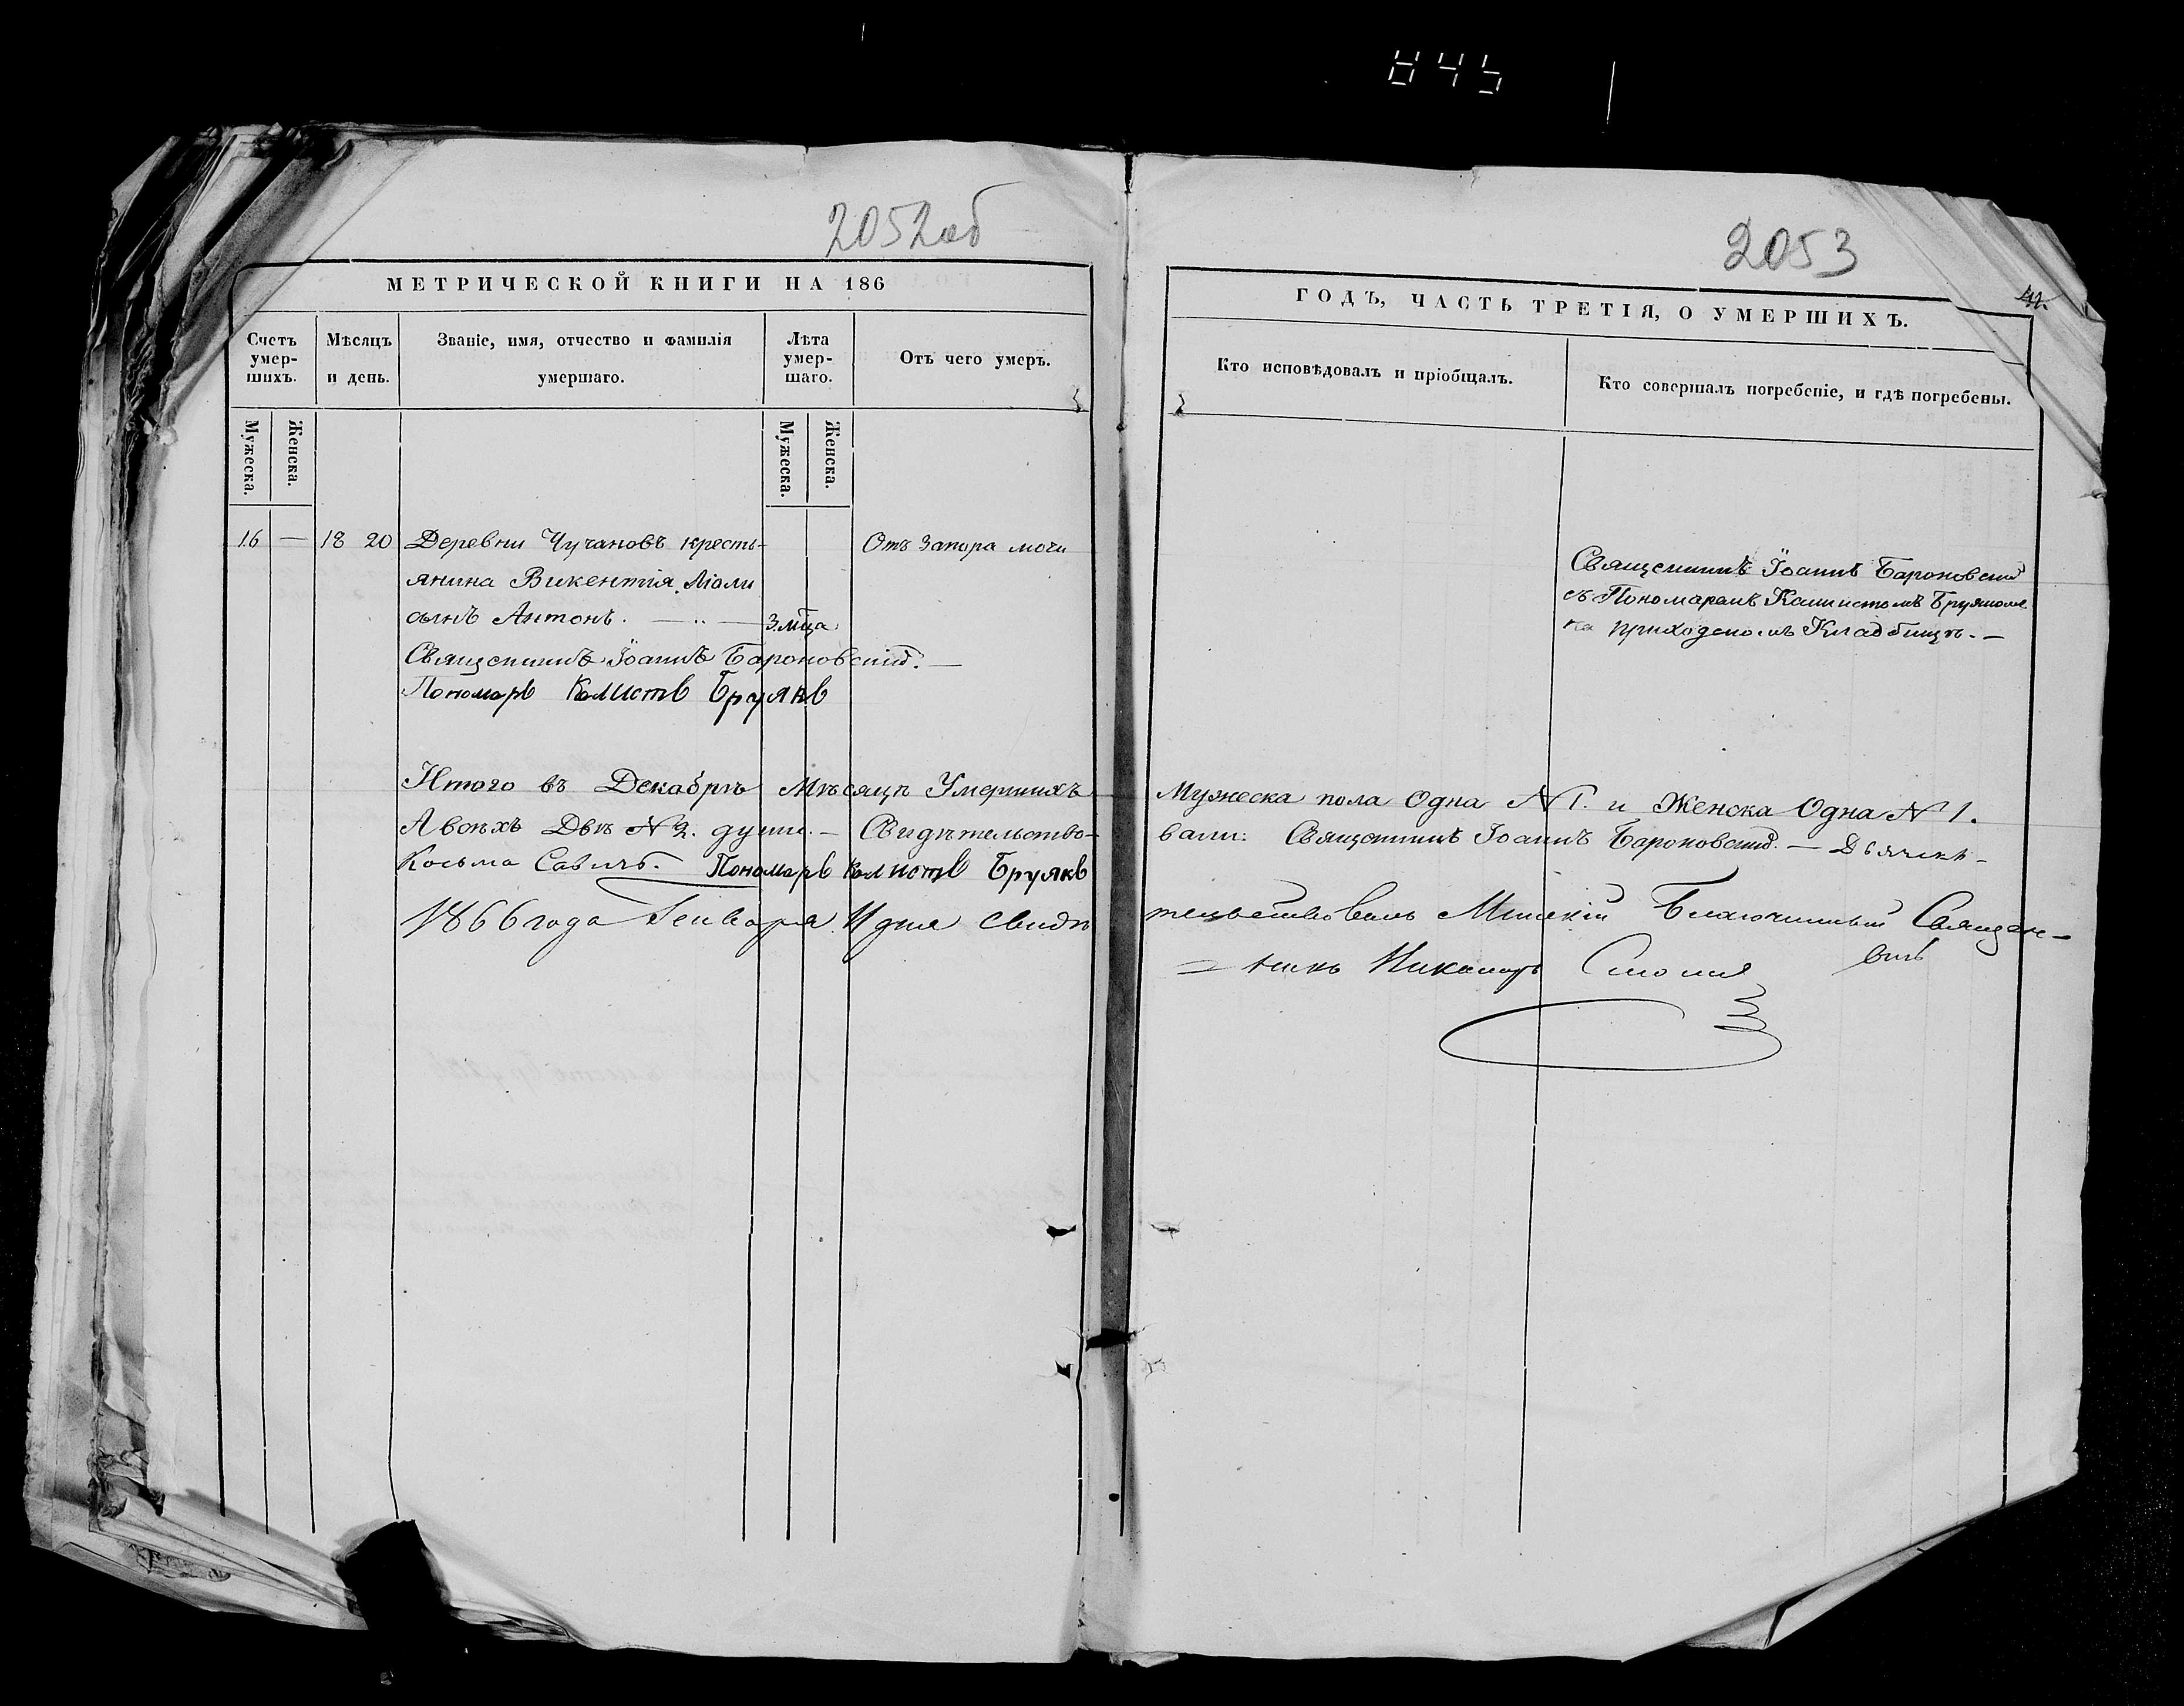 845
2052об
2053
МЕТРИЧЕСКОЙ КНИГИ НА 186
ГОДЪ, ЧАСТЬ ТРЕТІЯ, О УМЕРШИХЪ.
Счетъ умер-
шихъ.
Мѣсяцъ
и день.
Званіе, имя, отчество и фамилія
умершаго.
Лѣта
умер-
шаго.
Отъ чего умеръ.
Кто исповѣдовалъ и пріобщалъ.
Кто совершалъ погребеніе, и гдѣ погребены.
Мужеска.
Женска.
Мужеска.
Женска.
16 — 18 20 Деревни Чучановъ кресть-
Отъ Запора мочи
янина Викентія
сынъ Антонъ. — 3 мца
Священникъ Іоаннъ Бароновскій. —
Пономарь Калистъ Брукъ
Священникъ Іоаннъ Бароновскій
съ Пономаремъ Калистомъ
на приходскомъ Кладбищѣ. —
Итого въ Декабрѣ Мѣсяцѣ Умершихъ
Мужеска пола Одна N 1. и Женска Одна N 1.
А всѣхъ Двѣ N 2. души. — Свидѣтельство-
вали: Священникъ Іоаннъ Бароновскій. — Дьячекъ
Косьма Савичъ. Пономарь Калистъ
1866 года Генваря 11 дня свидѣ
тельствовалъ Минскій Благочинный Священ-
никъ Никаноръ Смоличъ